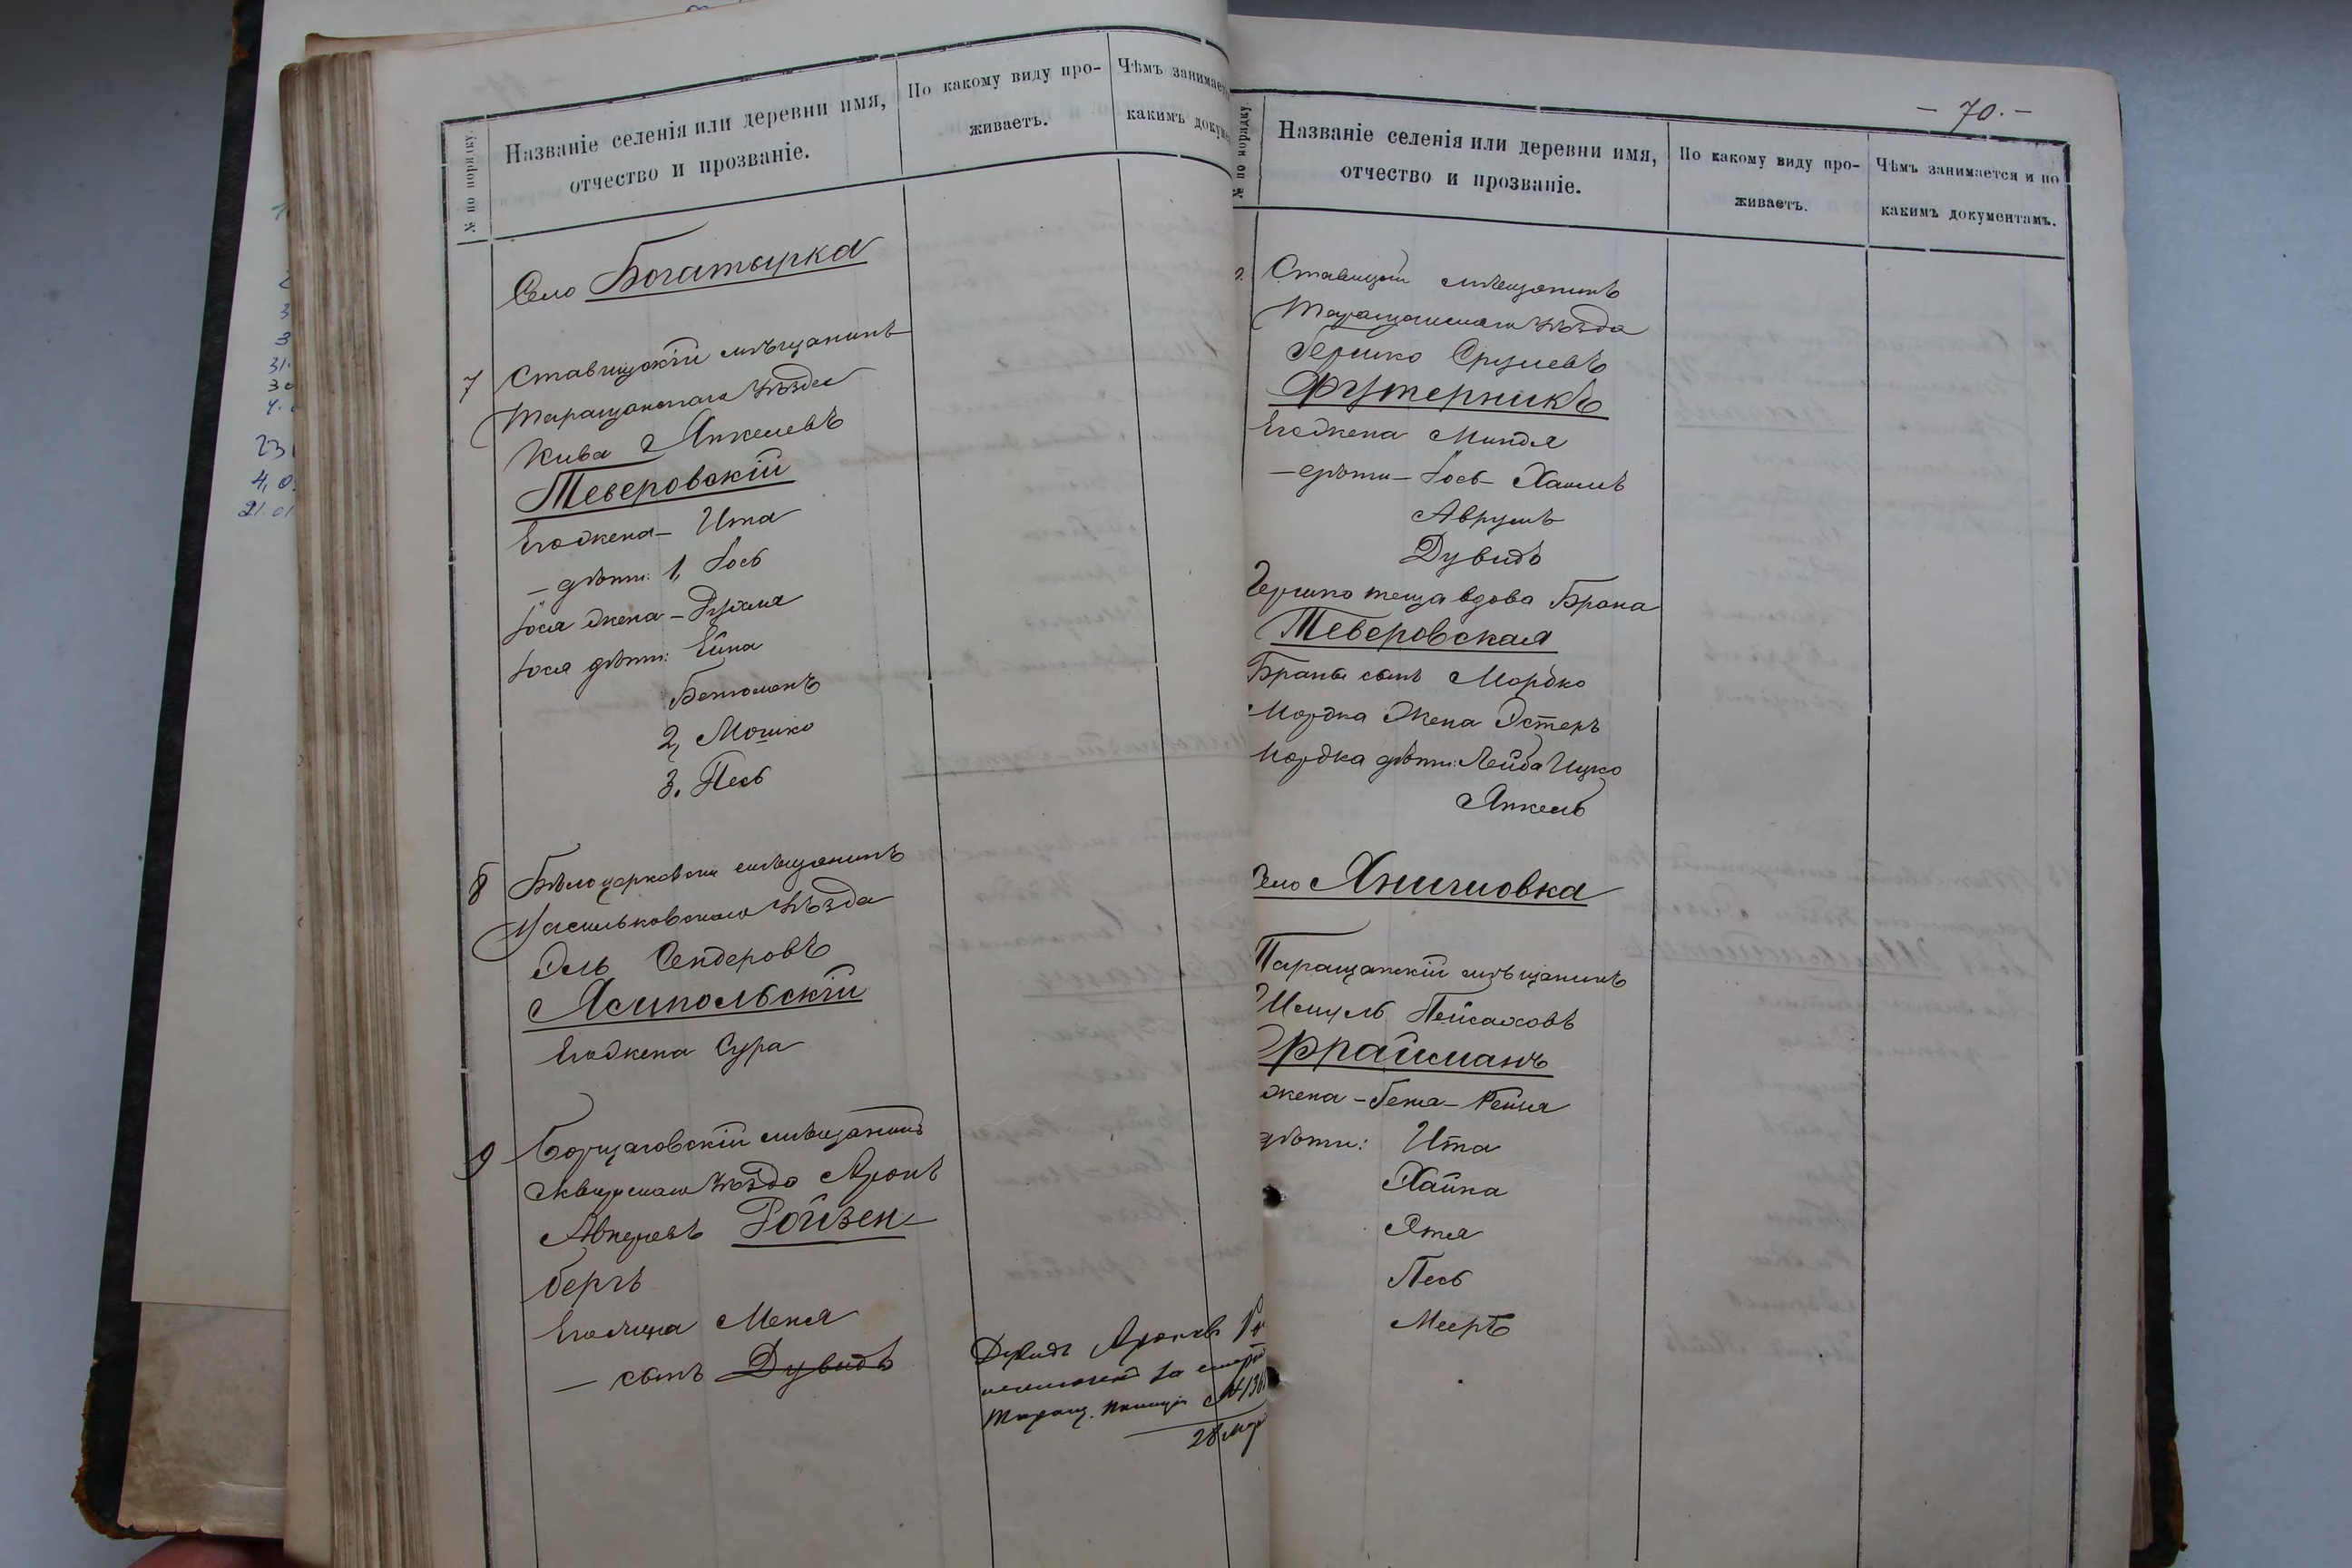 № по порядку.
Названіе селенія или деревни имя,
отчество и прозваніе.
По какому виду про-
живаетъ.
Чѣмъ занимае
какимъ докум
Село Богатырка
7
Ставищскій мѣщанинъ
Таращанскаго уѣзда
Кива Янкелевъ
Теверовскій
Его жена – Ита
– дѣти: 1, Іось
Іося жена – Рухля
Іося дѣти: Ейна
Беньюмень
2, Мошко
3. Песь
8
Бѣлоцерковскій мѣщанинъ
Васильковскаго уѣзда
Эль Сендеровъ
Ясипольскій
Его жена Сура
9
Борщаговскій мѣщанинъ
Сквирскаго уѣзда Аронъ
Ройзен-
бергъ
Его жена Меня
– сынъ Дувидъ
Дувидъ Ароновъ
исключенъ за смерт
Таращ. полиціи №
28
– 70. –
№ по порядку.
Названіе селенія или деревни имя,
отчество и прозваніе.
По какому виду про-
живаетъ.
Чѣмъ занимается и по
какимъ документамъ.
Ставищскій мѣщанинъ
Таращанскаго уѣзда
Гершко Срулевъ
Футерникъ
Его жена Миндля
– дѣти – Іось – Хаимъ
Аврумъ
Дувидъ
Гершко теща вдова Брана
Теверовская
Браны сынъ Мордко
Мордка жена Эстеръ
Мордка дѣти: Лейба Ицко
Янкель
Село Янишовка
Таращанскій мѣщанинъ
Шмуль Пейсаховъ
Фрайманъ
жена – Бейла – Рейзя
дѣти: Ита
Хайка
Этя
Песь
Мееръ